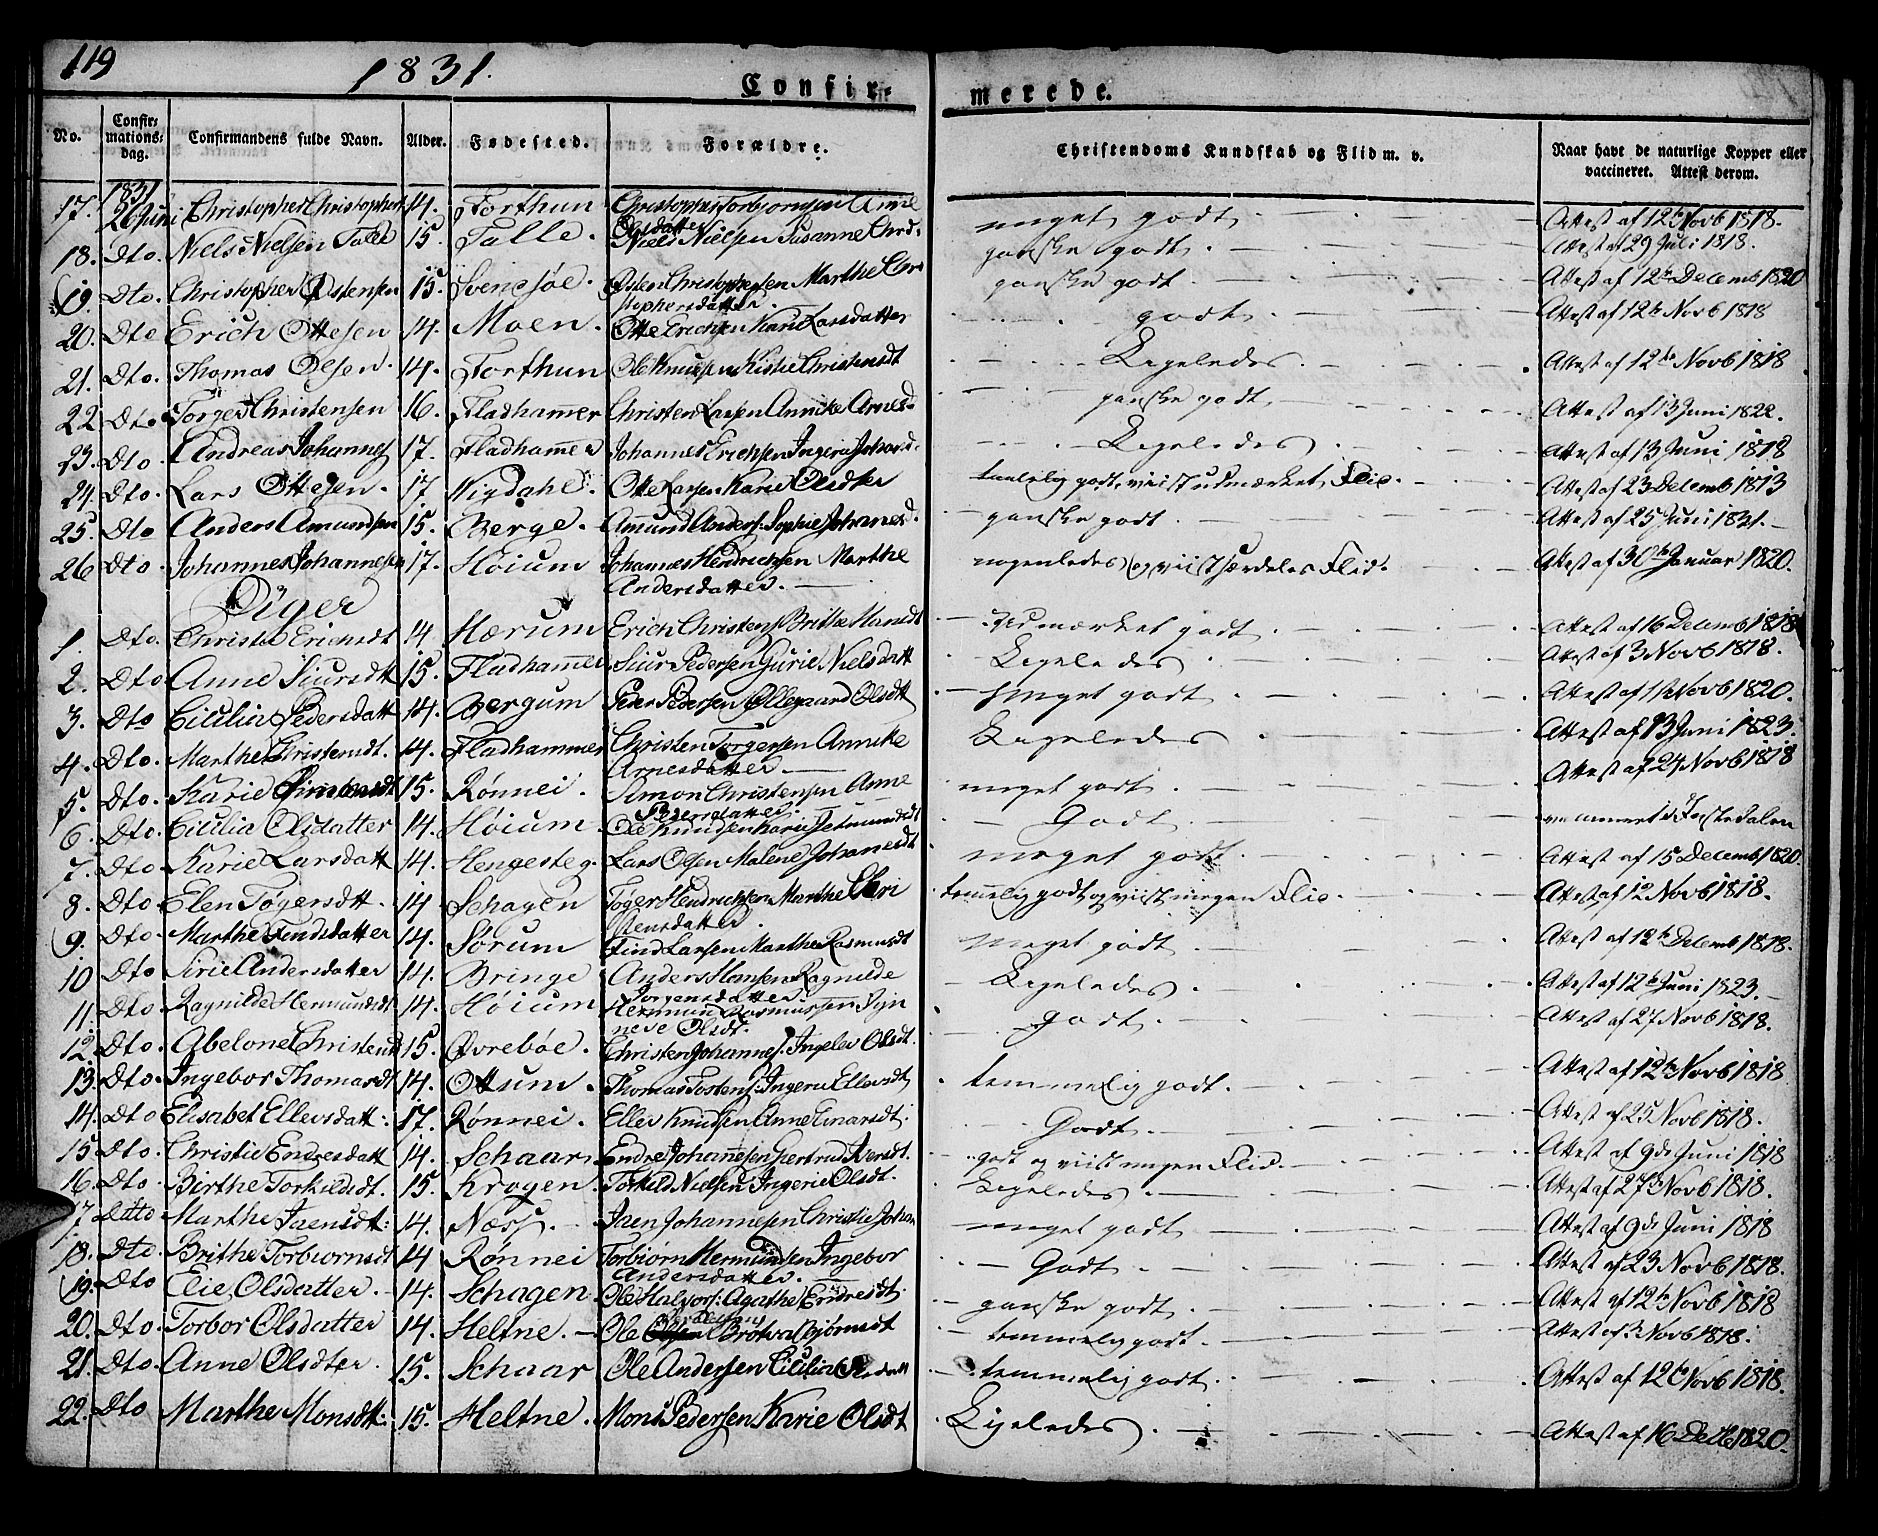 119
1831.
Confir-
merede.
No.
Confir-
mations-
dag.
Confirmandens fulde Navn.
Alder.
Fødested.
Forældre.
Christendoms Kundskab og Flid m. v.
Naar havt de naturlige Kopper eller
vaccineret. Attest derom.
1831
17. 26 Juni Christopher Christophers 14. Forthun Christopher Torbjørnsen Anne Olsdatter meget godt. Attest af 12te Novb 1818.
18. Dto. Niels Nielsen Talle 15. Talle. Niels Nielsen Susanne Chrd. ganske godt. Attest af 29 Juli 1818.
19. Dto. Christopher Østensen 15. Svensøe. Østen Christophersen Marthe Chri
stophersdatter. ganske godt Attest af 12te Decemb 1820
20. Dto Erich Ottesen 14. Moen. Otte Erichsen Kari Larsdatter godt. Attest af 12te Novb 1818
21. Dto. Thomas Olsen. 14. Forthun Ole Knudsen Kistie Christensdt Ligeledes. Attest af 12te Novb 1818
22. Dto. Torger Christensen 16. Fladhammer Christen Larsen Annike Arnesd. ganske godt. Attest af 13 Juni 1822.
23. Dto. Andreas Johannes 17. Fladhammer Johannes Erichsen Ingeri Johansd. Ligeledes. Attest af 13 Juni 1818
24. Dto. Lars Ottesen. 17 Vigdahl. Otte Larsen Karie Olsdter taalelig godt, viist udmærket Flid. Attest af 23 Decemb 1813
25. Dto Anders Amundsen 15. Berge. Amund Anders: Sophie Johannesd. ganske godt. Attest af 25 Juni 1831.
26 Dto. Johannes Johannesen 17. Høium Johannes Hendrichsen Marthe
Andersdatter. nogenledes og viist særdeles Flid. Attest af 30te Januar 1820.
Piger
1. Dto. Christie Erichsdt 14. Hærum Erich Christens: Brithe Hansdt Udmærket godt. Attest af 16 Decemb 1818
2. Dto Anne Siursdt 15. Fladhammer Siur Pedersen Gurie Nielsdatt Ligeledes. Attest af 3 Novb 1818.
3. Dto Cicilia Pedersdatt 14. Bergum Peder Pedersen Ollegaard Olsdt meget godt. Attest af 11 Novb 1820.
4. Dto. Marthe Christensdt. 14. Fladhammer Christen Torgersen Annike
Arnesdatter. Ligeledes Attest af 13 Juni 1823.
5. Dto. Karie Simonsdt 15. Rønnei. Simon Christensen Anne
Pedersdatter meget godt. Attest af 24 Novb 1818
6. Dto. Cicilia Olsdatter 14. Høium. Ole Knudsen Karie Godt. vaccineret i Justedalen
7. Dto Karie Larsdatt 14. Hengesteg. Lars Olsen Malene Johanesdt meget godt. Attest af 15 Decemb 1820.
8. Dto Elen Tøgersdtt. 14. Schagen Tøger Hendrichsen Marthe Chri
stensdatter. temmelig godt og viist megen Flid. Attest af 12 Novb 1818.
9. Dto. Marthe Findsdatter 14. Sørum Find Larsen Marthe Rasmusdt meget godt Attest af 12te Decemb 1818.
10 Dto Sirie Andersdatter 14. Bringe Anders Hansen Ragnilde
Jørgensdatter. Ligeledes. Attest af 12te Juni 1823.
11. Dto Ragnilde Hermundsdt 14. Høium Hermund Rasmussen Syn
neve Olsdt. Godt. Attest af 27 Novb 1818.
12. Dto. Abelone Christensdt 15. Øvrebøe. Christen Johannes: Ingelev Olsdt.
13. Dto. Ingebor Thomasdt 14. Ottum. Thomas Tostens: Ingeri Ellersdt temmelig godt. Attest af 12te Novb 1818
14. Dto Elisabet Ellersdatt: 17. Rønnei. Eller Knudsen Anne Einarsdt. Godt. Attest af 25 Novb 1818.
15 Dto. Christie Endresdatt 14. Schaar Endre Johannesen Giertrud Iversdt. godt og viist megen Flid. Attest af 9de Juni 1818
16. Dto. Birthe Torkildsdt. 15. Krogen. Torkild Nielsen Ingerie Olsdt. Ligeledes. Attest af 27 Novb 1818.
17 Ditto Marthe Jaensdt: 14. Næss. Jaen Johannesen Christie Johan meget godt Attest af 9de Juni 1818
18. Dto. Brithe Torbiørnsdt 14 Rønnei Torbiørn Hermundsen Ingebor
Andersdatter. Godt. Attest af 23 Novb 1818.
19. Dto Elie Olsdatter. 14. Schagen. Ole Halvors: Agathe Endresdt. ganske godt. Attest af 12te Novb 1818
20. Dto. Torbor Olsdatter 14. Heltne. Ole Asbjørnsdt temmelig godt. Attest af 3 Novb 1818.
21. Dto Anne Olsdter. 15. Schaar Ole Andersen Cicilia temmelig godt. Attest af 12te Novb 1818.
22. Dto Marthe Monsdtt: 15. Heltne. Mons Pedersen Karie Olsdt Ligeledes. Attest af 16 Decb 1820.